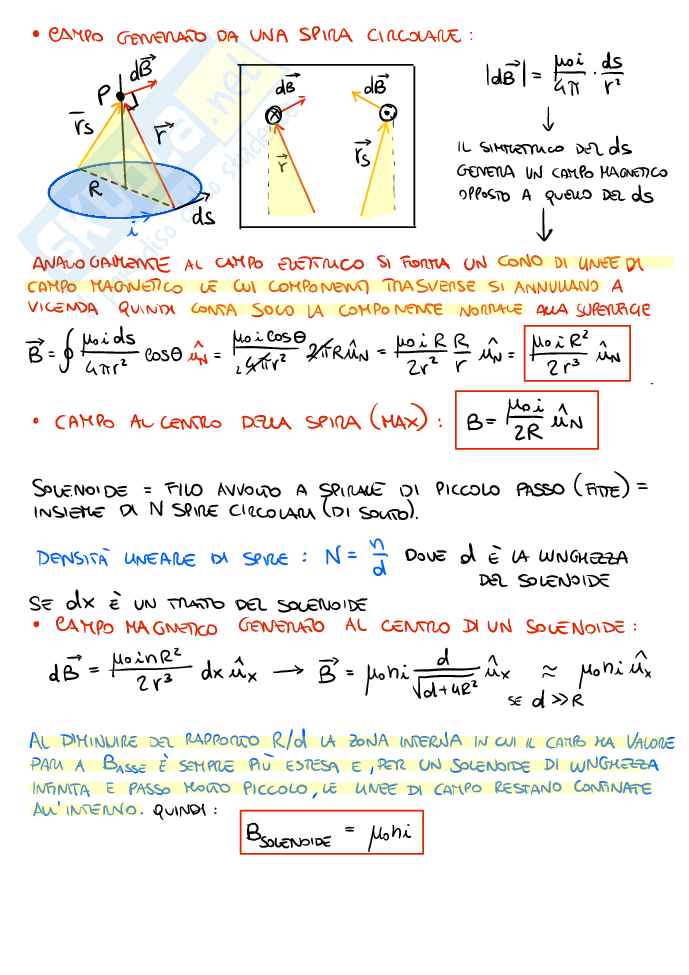 • CAMPO GENERATO DA UNA SPIRA CIRCOLARE :
P dB⃗
r⃗s r⃗
R
ds
i
dB⃗ dB⃗
r⃗ r⃗s
|dB⃗| = μ₀i/4π · ds/r²
IL SIMMETRICO DEL ds
GENERA UN CAMPO MAGNETICO
OPPOSTO A QUELLO DEL ds
ANALOGAMENTE AL CAMPO ELETTRICO SI FORMA UN CONO DI LINEE DI
CAMPO MAGNETICO LE CUI COMPONENTI TRASVERSE SI ANNULLANO A
VICENDA QUINDI CONTA SOLO LA COMPONENTE NORMALE ALLA SUPERFICIE
B⃗ = ∮ μ₀ i ds/4πr² cosθ û_N = μ₀ i cosθ/₂4πr² 2πR û_N = μ₀ i R/2r² R/r û_N = μ₀ i R²/2r³ û_N
• CAMPO AL CENTRO DELLA SPIRA (MAX) : B = μ₀i/2R û_N
SOLENOIDE = FILO AVVOLTO A SPIRALE DI PICCOLO PASSO (FITTE) =
INSIEME DI N SPIRE CIRCOLARI (DI SOLITO).
DENSITÀ LINEARE DI SPIRE : N = n/d DOVE d È LA LUNGHEZZA
DEL SOLENOIDE
SE dx È UN TRATTO DEL SOLENOIDE
• CAMPO MAGNETICO GENERATO AL CENTRO DI UN SOLENOIDE :
dB⃗ = μ₀inR²/2r³ dx û_x → B⃗ = μ₀ni d/√(d+4R²) û_x ≈ μ₀ni û_x
SE d ≫ R
AL DIMINUIRE DEL RAPPORTO R/d LA ZONA INTERNA IN CUI IL CAMPO HA VALORE
PARI A B_ASSE È SEMPRE PIÙ ESTESA E, PER UN SOLENOIDE DI LUNGHEZZA
INFINITA E PASSO MOLTO PICCOLO, LE LINEE DI CAMPO RESTANO CONFINATE
ALL'INTERNO. QUINDI :
B_SOLENOIDE = μ₀ni